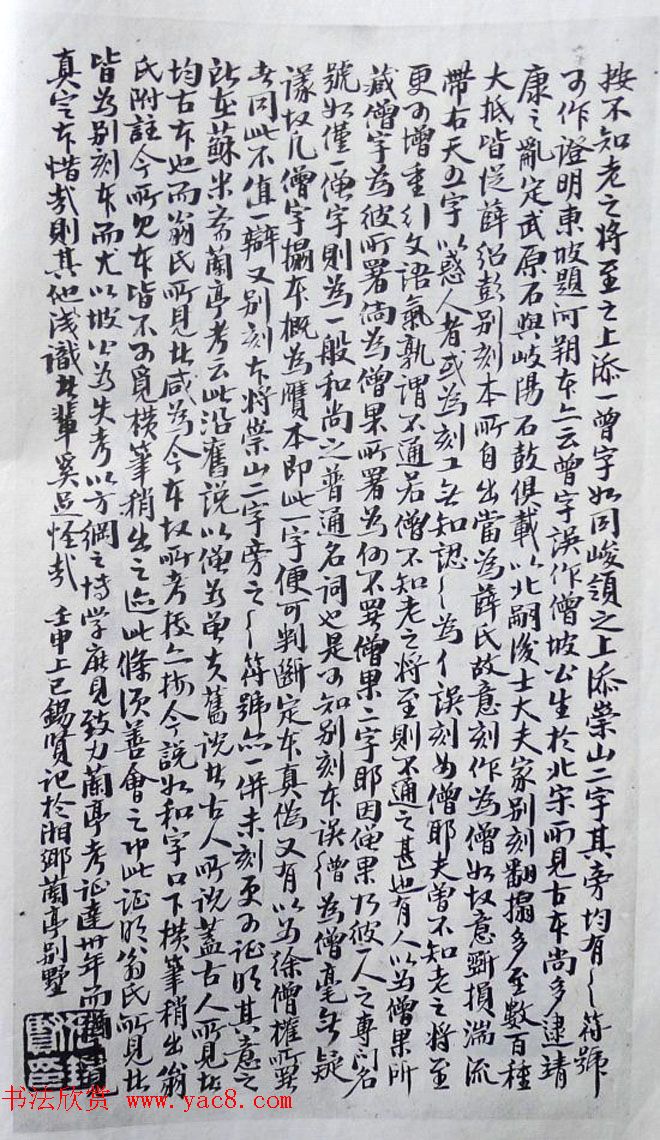 按不知老之将至之上添一曾字如同峻領之上添崇山二字其旁均有乀符號
可作證明東坡題河朔本亦云曾字誤作僧坡公生於北宋所見古本尚多逮靖
康之亂定武原石與岐陽石鼓俱載以北嗣後士大夫家別刻翻搨多至數百種
大抵皆從薛紹彭別刻本所自出當為薛氏故意刻作為僧如故意斲損湍流
帶右天五字以惑人者或為刻工無知認乀為亻誤刻如僧耶夫曾不知老之將至
更可增重行文語氣孰謂不通若僧不知老之將至則不通之甚也有人以為僧果所
藏僧字為彼所署倘為僧果所署為何不署僧果二字耶因僧果乃彼一人之專門名
號如僅一僧字則為一般和尚之普通名詞也是可知別刻本誤僧為僧毫無疑
議故凡僧字搨本概為贋本即此一字便可判斷定本真偽又有以為徐僧權所署
者同此不值一辯又別刻本將崇山二字旁之乀符號亦一併未刻更可證明其意之
所在蘇米齋蘭亭考云此沿舊說以僧為曾夫舊說者古人所說蓋古人所見者
均古本也而翁氏所見者咸為今本故所考按亦均今說如和字口下橫筆稍出翁
氏附註今所見本皆不可覓橫筆稍出之迹此條須善會之印此證明翁氏所見者
皆為別刻本而尤以坡公為失考以方綱之博學廣見致力蘭亭考証達卅年而
真定本惜哉則其他淺識者輩奚足怪哉 壬申上巳錫賢記於湘鄉蘭亭別墅
书法欣赏 www.yac8.com